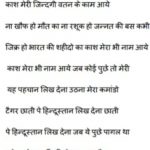 काश मेरी जिन्दगी वतन के काम आये
ना खौफ हो मौत का ना रशूक हो जन्नत की बस कभी
जिक्र हो भारत की शहीदो का काश मेरा भी नाम आये
काश मेरा भी नाम आये जब कोई पुर्छे तो मेरी
यह पहचान लिख देना उठना मेरा कमांडो
टैगर छाती पे हिन्दूस्तान लिख देना छाती
पे हिन्दूस्तान लिख देना जब ये पुर्छे पागल था